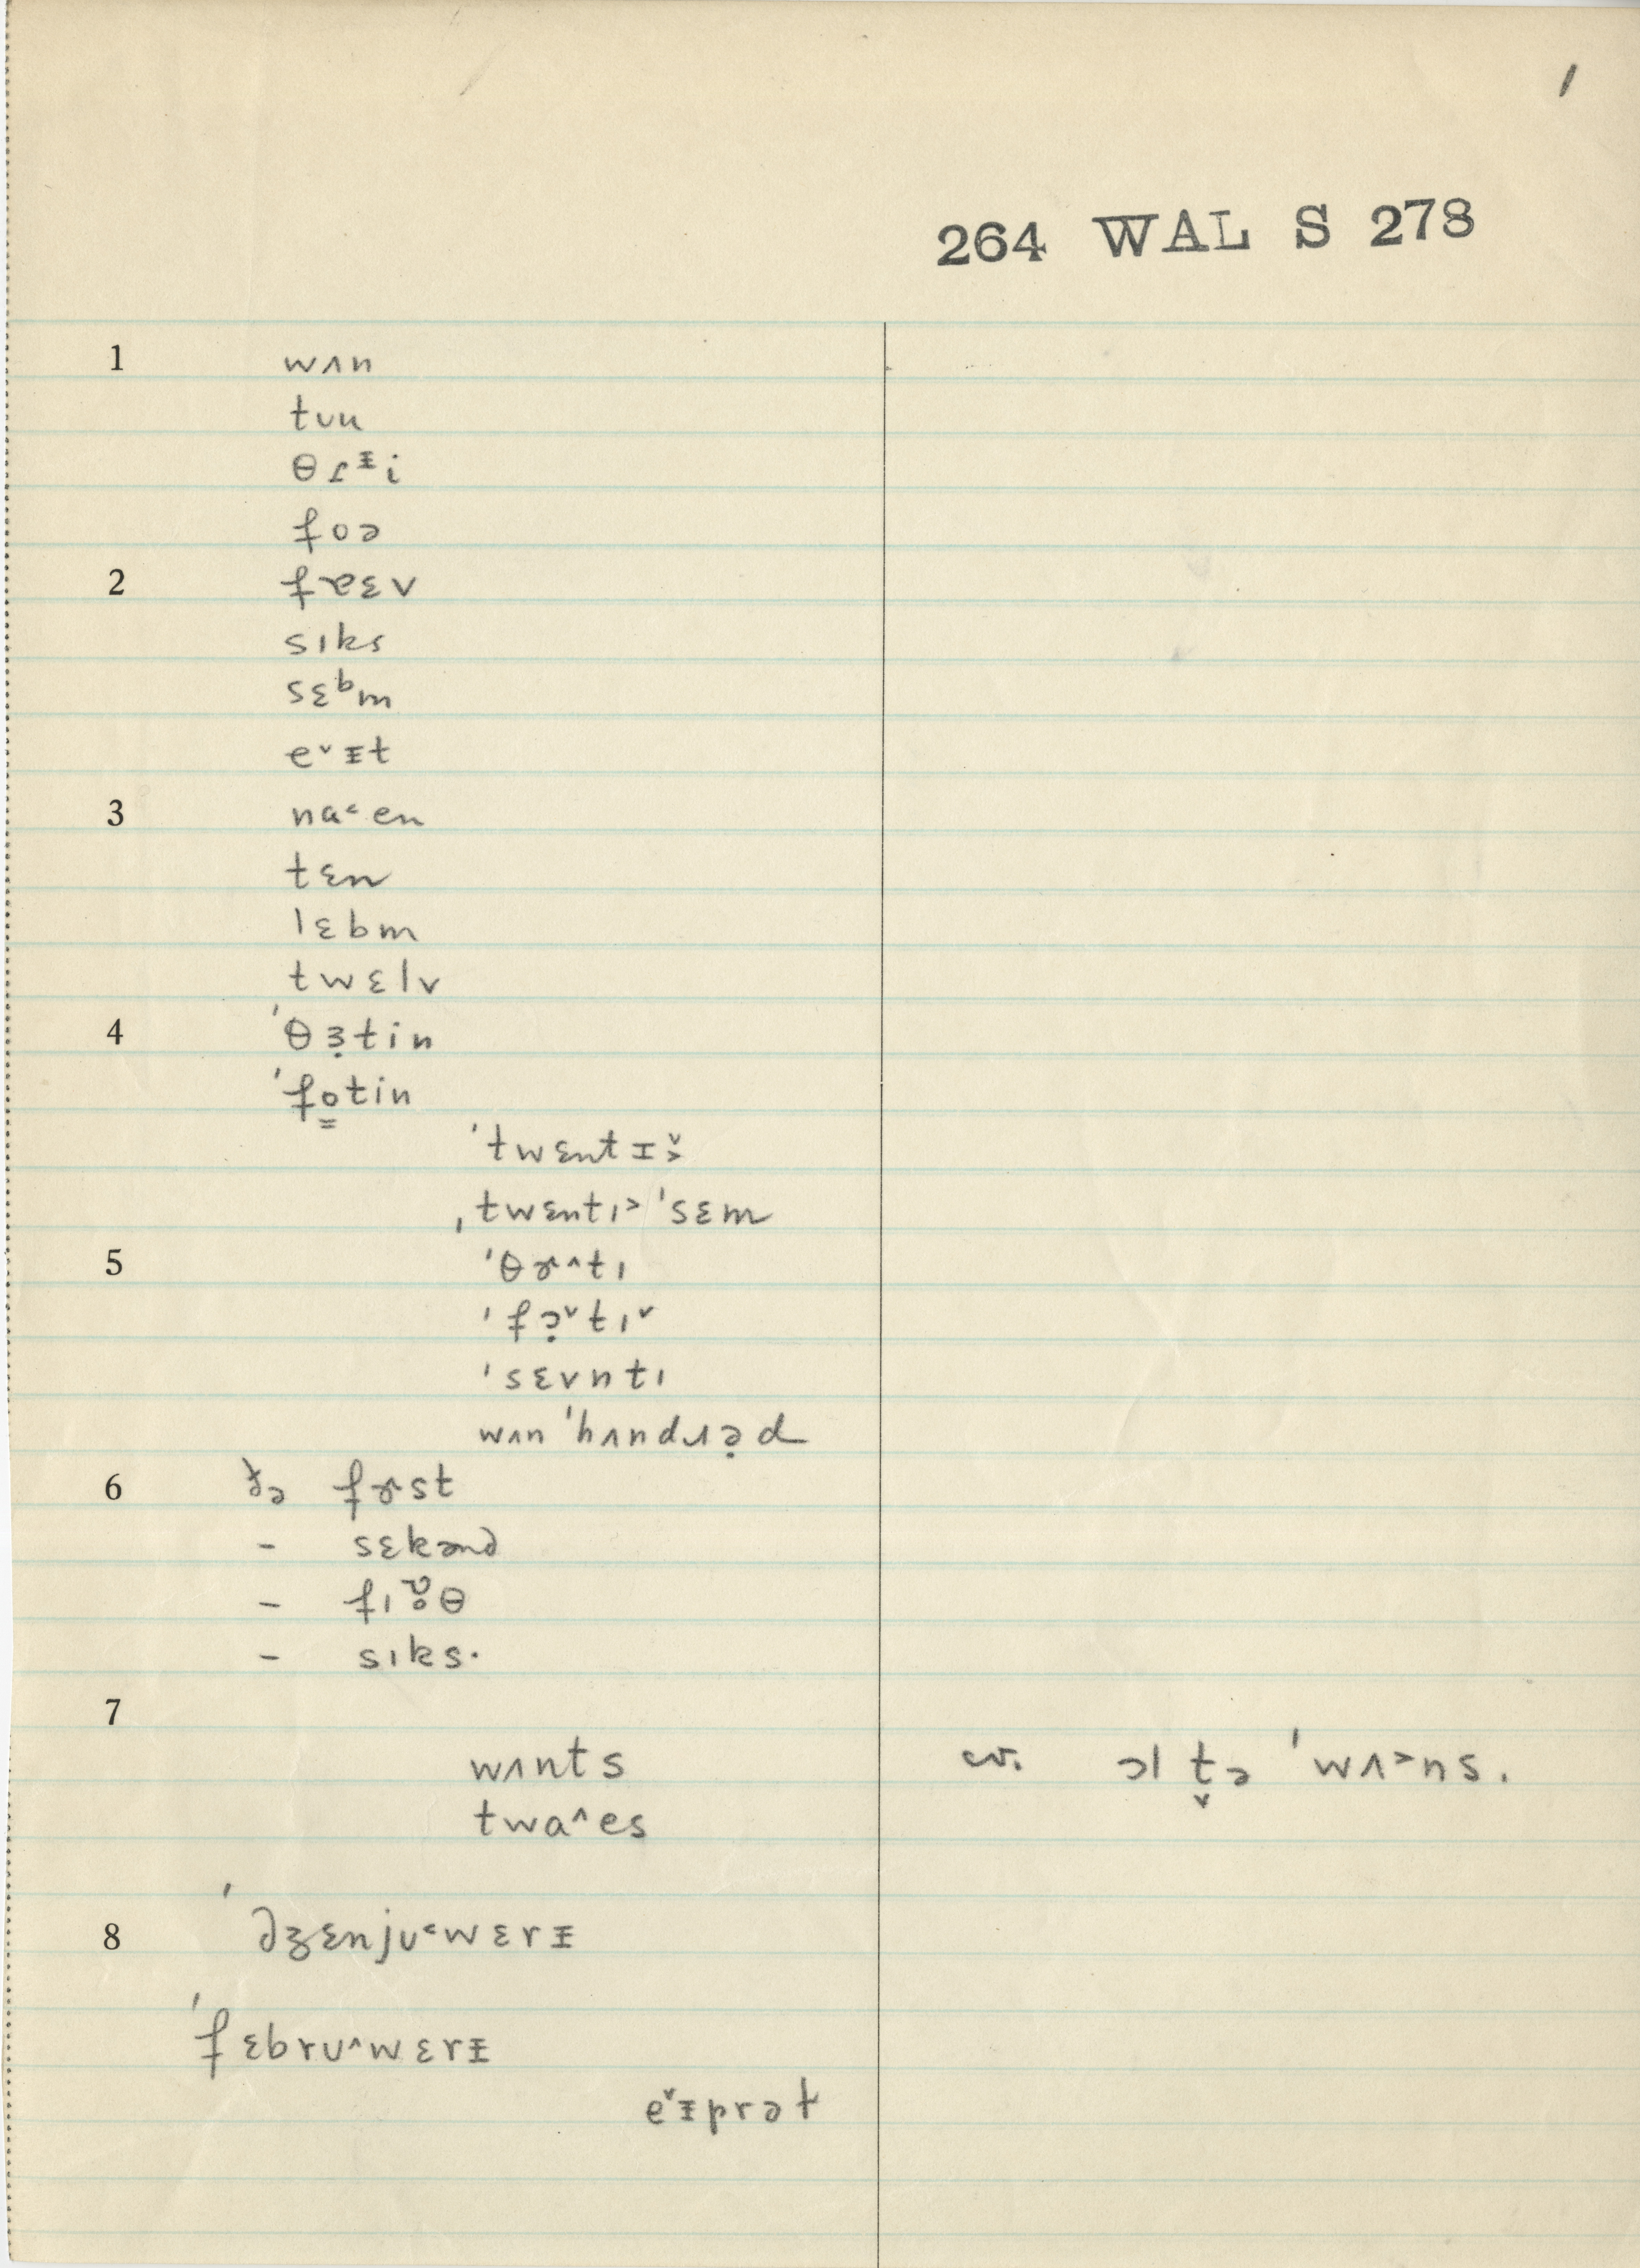 /
264 WAL S 278
1 wʌn
tʊu
θɾᵻi
foə
2 fɐɛv
sɪks
sɛᵇm
e˅ᵻt
3 na˂en
tɛn
lɛbm
twɛlv
4 ˈθɜ̣tin
ˈfo̳tin
ˈtwɛntɪ˅˃
ˌtwɛntɪ˃ ˈsɛm
5 ˈθɚ˄tɪ
ˈfɔ̣˅tɪ˅
ˈsɛvntɪ
wʌn ˈhʌndɹə̣d
6 fɚst
- sɛkənd
- θ
- sɪks·
7
wʌnts cv. ɔl t̬ə ˈwʌ˃ns.
twa˄es
8 ˈdʒɛnjʊ˂wɛrᵻ
ˈfɛbrʊ˄wɛrᵻ
e˅ᵻprəɫ